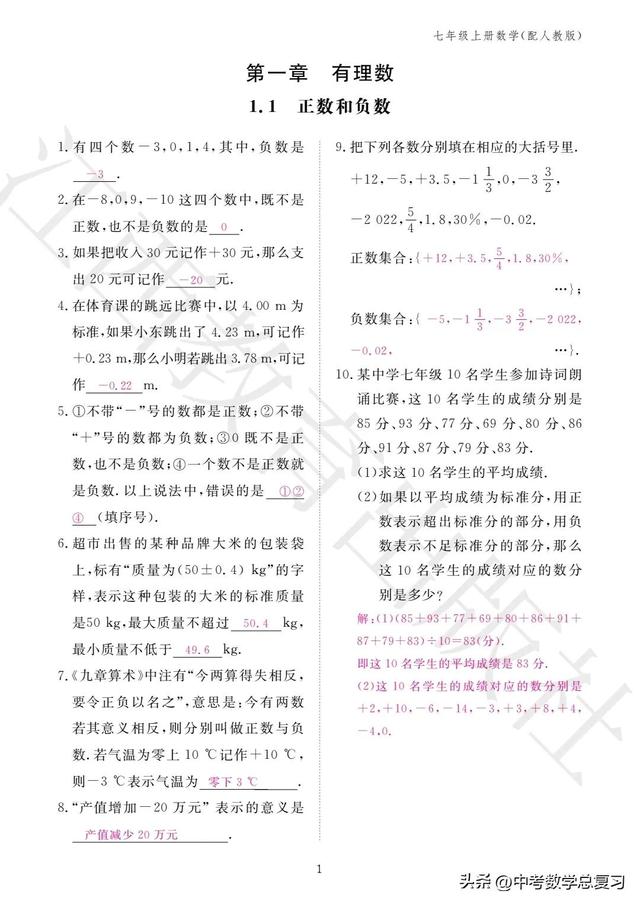 七年级上册数学(配人教版)
第一章 有理数
1.1 正数和负数
1. 有四个数－3,0,1,4,其中,负数是
－3 .
2. 在－8,0,9,－10 这四个数中,既不是
正数,也不是负数的是 0 .
3. 如果把收入 30 元记作＋30 元,那么支
出 20 元可记作 －20 元.
4. 在体育课的跳远比赛中,以 4.00 m 为
标准,如果小东跳出了 4.23 m,可记作
＋0.23 m,那么小明若跳出 3.78 m,可记
作 －0.22 m.
5. ①不带“－”号的数都是正数;②不带
“＋”号的数都为负数;③0 既不是正
数,也不是负数;④一个数不是正数就
是负数. 以上说法中,错误的是 ①②
④ (填序号).
6. 超市出售的某种品牌大米的包装袋
上,标有“质量为(50±0.4) kg”的字
样,表示这种包装的大米的标准质量
是50 kg,最大质量不超过 50.4 kg,
最小质量不低于 49.6 kg.
7.《九章算术》中注有“今两算得失相反,
要令正负以名之”,意思是:今有两数
若其意义相反,则分别叫做正数与负
数. 若气温为零上 10 ℃记作＋10 ℃,
则－3 ℃表示气温为 零下 3 ℃ .
8.“产值增加－20 万元” 表示的意义是
产值减少 20 万元 .
9. 把下列各数分别填在相应的大括号里.
＋12,－5,＋3.5,－1 1/3,0,－3 3/2,
－2 022,5/4,1.8,30%,－0.02.
正数集合:{＋12,＋3.5,5/4,1.8,30%,
…};
负数集合:{ －5,－1 1/3,－3 3/2,－2 022,
－0.02, …}.
10. 某中学七年级 10 名学生参加诗词朗
诵比赛,这 10 名学生的成绩分别是
85 分、93 分、77 分、69 分、80 分、86
分、91 分、87 分、79 分、83 分.
(1)求这 10 名学生的平均成绩.
(2)如果以平均成绩为标准分,用正
数表示超出标准分的部分,用负
数表示不足标准分的部分,那么
这 10 名学生的成绩对应的数分
别是多少?
解:(1)(85＋93＋77＋69＋80＋86＋91＋
87＋79＋83)÷10＝83(分).
即这 10 名学生的平均成绩是 83 分.
(2)这 10 名学生的成绩对应的数分别是
＋2,＋10,－6,－14,－3,＋3,＋8,＋4,
－4,0.
1
头条 @中考数学总复习
江西教育出版社